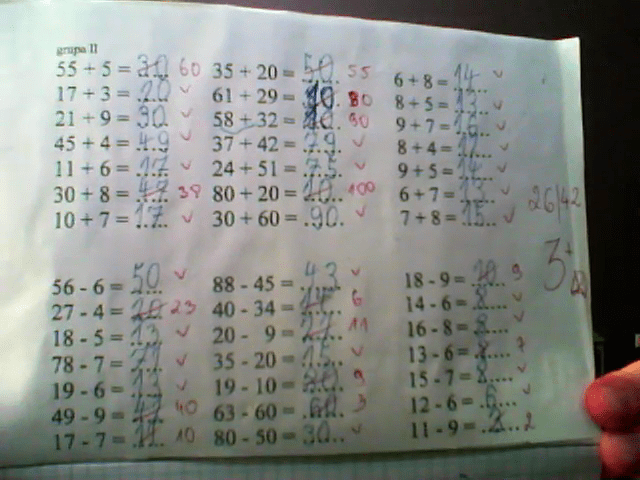 grupa II
55 + 5 = 30 60 35 + 20 = 50 55 6 + 8 = 14
17 + 3 = 20 61 + 29 = 8 + 5 = 13
21 + 9 = 30 58 + 32 = 90 9 + 7 =
45 + 4 = 49 37 + 42 = 79 8 + 4 = 12
11 + 6 = 17 24 + 51 = 75 9 + 5 = 14
30 + 8 = 38 80 + 20 = 100 6 + 7 = 13
10 + 7 = 17 30 + 60 = 90 7 + 8 = 15
26/42
3+
56 - 6 = 50 88 - 45 = 43 18 - 9 = 9
27 - 4 = 20 23 40 - 34 = 14 6 14 - 6 = 8
18 - 5 = 13 20 - 9 = 11 16 - 8 = 8
78 - 7 = 71 35 - 20 = 15 13 - 6 = 7
19 - 6 = 13 19 - 10 = 9 15 - 7 = 8
49 - 9 = 40 63 - 60 = 60 3 12 - 6 = 6
17 - 7 = 10 80 - 50 = 30 11 - 9 = 2